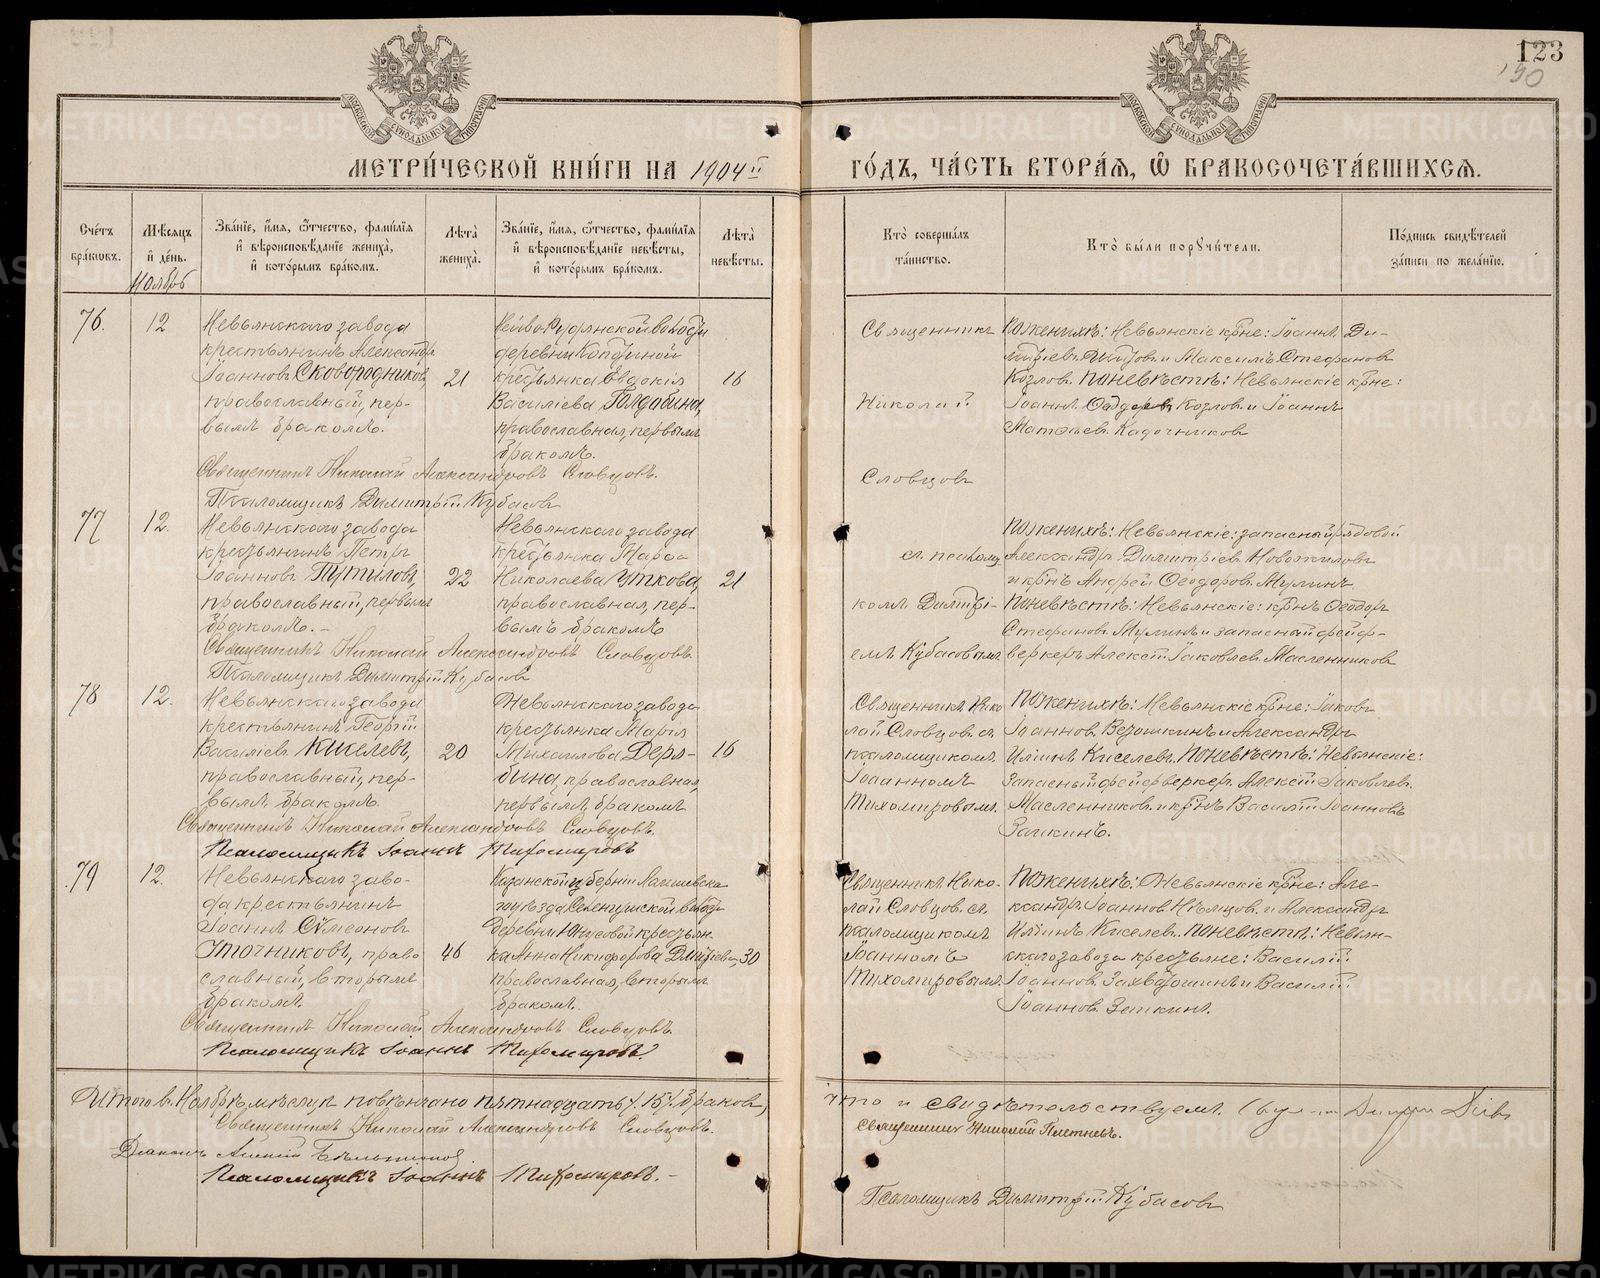 123
190
МЕТРИ́ЧЕСКОЙ КНИ́ГИ НА 1904 г.
ГО́ДЪ, ЧА́СТЬ ВТОРА́Я, Ѽ БРАКОСОЧЕТА́ВШИХСЯ.
Сче́тъ бра́кωвъ.
Мѣ́сяцъ и҆ де́нь.
Ноябрь
Зва́нїе, и҆́мя, ѻ҆́тчество, фами́лїя и҆ вѣроисповѣ́данїе жениха̀, и҆ кото́рымъ бра́комъ.
Лѣ́та жениха̀.
Зва́нїе, и҆́мя, ѻ҆́тчество, фами́лїя и҆ вѣроисповѣ́данїе невѣ́сты, и҆ кото́рымъ бра́комъ.
Лѣ́та невѣ́сты.
Кто̀ соверша́лъ та́инство.
Кто̀ бы́ли порꙋчи́тели.
По́дпись свидѣ́телей за́писи по жела́нїю.
76.
12
Невьянскаго завода
крестьянинъ Александръ
Іоанновъ Сковородниковъ,
православный, пер-
вымъ бракомъ.
21
Нейво Рудянской волости
деревни
крестьянка Евдокія
Василіева
православная, первымъ
бракомъ.
16
Священникъ
Николай
Словцовъ
По женихѣ: Невьянскіе кр-не: Іоаннъ Ди-
митріевъ Титовъ и Максимъ Стефановъ
Козловъ. По невѣстѣ: Невьянскіе кр-не:
Іоаннъ Ѳеодоровъ Козловъ и Іоаннъ
Матѳіевъ Кадочниковъ
Священникъ Николай Александровъ Словцовъ.
Псаломщикъ Димитрій Кубасовъ
77
12.
Невьянскаго завода
крестьянинъ Петръ
Іоанновъ Путиловъ,
православный, первымъ
бракомъ. -
22
Невьянскаго завода
крестьянка Марѳа
Николаева Уткова,
православная, пер-
вымъ бракомъ
21
съ псалом-
комъ Димитрі-
емъ Кубасовымъ
По женихѣ: Невьянскіе: запасный рядовой
Александръ Димитріевъ Новожиловъ
и кр-нъ Андрей Ѳеодоровъ Мулинъ.
По невѣстѣ: Невьянскіе: кр-нъ Ѳеодоръ
Стефановъ Мулинъ и запасный фейер-
веркеръ Алексій Іаковлевъ Масленниковъ
Священникъ Николай Александровъ Словцовъ.
Псаломщикъ Димитрій Кубасовъ
78
12.
Невьянскаго завода
крестьянинъ Георгій
Василіевъ Киселевъ,
православный, пер-
вымъ бракомъ
20
Невьянскаго завода
крестьянка Марія
Михаилова Деря-
бина, православная,
первымъ бракомъ
16
Священникъ Нико-
лай Словцовъ съ
псаломщикомъ
Іоанномъ
Тихомировымъ.
По женихѣ: Невьянскіе кр-не: Іаковъ
Іоанновъ Ветошкинъ и Александръ
Илiинъ Киселевъ. По невѣстѣ: Невьянскіе:
Запасный фейерверкеръ Алексій Іаковлевъ
Масленниковъ и кр-нъ Василій Іоанновъ
Заикинъ.
Священникъ Николай Александровъ Словцовъ.
Псаломщикъ Іоаннъ Тихомировъ
79
12.
Невьянскаго заво-
да крестьянинъ
Іоаннъ Сѵмеоновъ
Уточниковъ, право
славный, вторымъ
бракомъ.
46
Казанской губерніи Лаишевска
го уѣзда волости
деревни крестьян
ка Анна Никифорова Дмитріева,
православная, вторымъ
бракомъ.
30
Священникъ Нико-
лай Словцовъ съ
псаломщикомъ
Іоанномъ
Тихомировымъ.
По женихѣ: Невьянскіе кр-не: Але-
ксандръ Іоанновъ Нѣмцовъ и Александръ
Илiинъ Киселевъ. По невѣстѣ: Невьян-
скаго завода крестьяне: Василій
Іоанновъ Захваташинъ и Василій
Іоанновъ Заикинъ.
Священникъ Николай Александровъ Словцовъ.
Псаломщикъ Іоаннъ Тихомировъ.
Итого въ Ноябрѣ мѣсяцѣ повѣнчано пятнадцать /15/ браковъ,
что и свидѣтельствуемъ.
Священникъ Николай Александровъ Словцовъ.
Священникъ Николай Плетневъ.
Діаконъ Алексій
Псаломщикъ Іоаннъ Тихомировъ. -
Псаломщикъ Димитрій Кубасовъ
METRIKI.GASO-URAL.RU